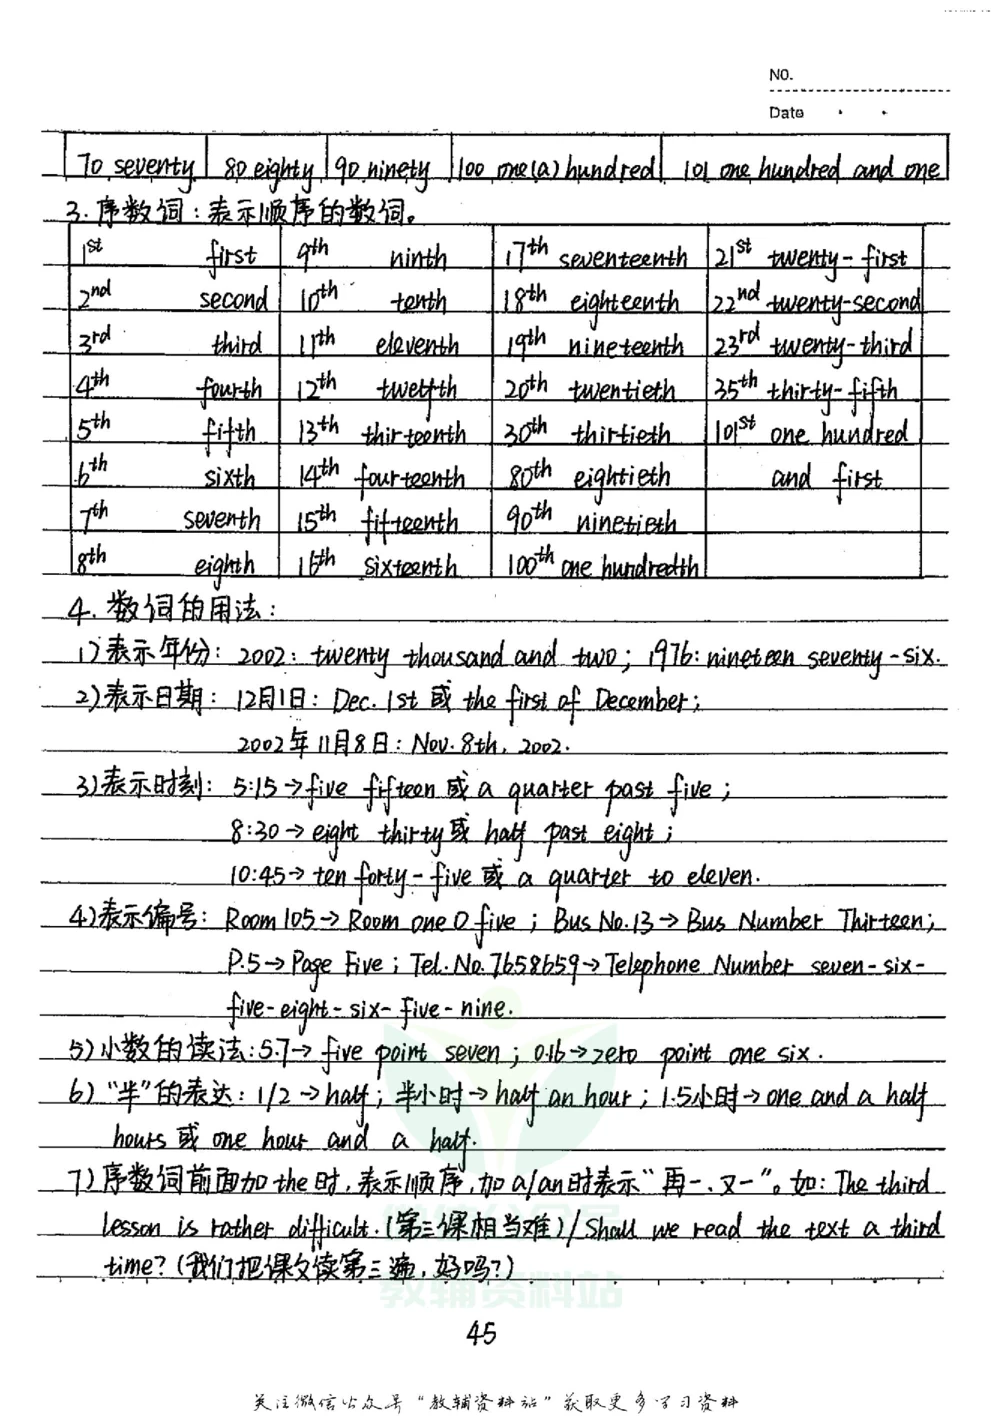 NO.
Date
70 seventy 80 eighty 90 ninety 100 one(a) hundred 101 one hundred and one
3. 序数词：表示顺序的数词。
1st first 9th ninth 17th seventeenth 21st twenty-first
2nd second 10th tenth 18th eighteenth 22nd twenty-second
3rd third 11th eleventh 19th nineteenth 23rd twenty-third
4th fourth 12th twelfth 20th twentieth 35th thirty-fifth
5th fifth 13th thirteenth 30th thirtieth 101st one hundred
6th sixth 14th fourteenth 80th eightieth and first
7th seventh 15th fifteenth 90th ninetieth
8th eighth 16th sixteenth 100th one hundredth
4. 数词的用法：
1)表示年份：2002：twenty thousand and two；1976：nineteen seventy-six.
2)表示日期：12月1日：Dec. 1st 或 the first of December；
2002年11月8日：Nov. 8th, 2002.
3)表示时刻：5:15→five fifteen 或 a quarter past five；
8:30→eight thirty 或 half past eight；
10:45→ten forty-five 或 a quarter to eleven.
4)表示编号：Room 105→Room one O five；Bus No.13→Bus Number Thirteen；
P.5→Page Five；Tel.No.7658659→Telephone Number seven-six-
five-eight-six-five-nine.
5)小数的读法：5.7→five point seven；0.16→zero point one six.
6)“半”的表达：1/2→half；半小时→half an hour；1.5小时→one and a half
hours 或 one hour and a half.
7)序数词前面加the时，表示顺序，加a/an时表示“再一、又一”。如：The third
lesson is rather difficult.(第三课相当难)/Shall we read the text a third
time?(我们把课文读第三遍，好吗?)
教辅资料站
45
关注微信公众号“教辅资料站”获取更多学习资料